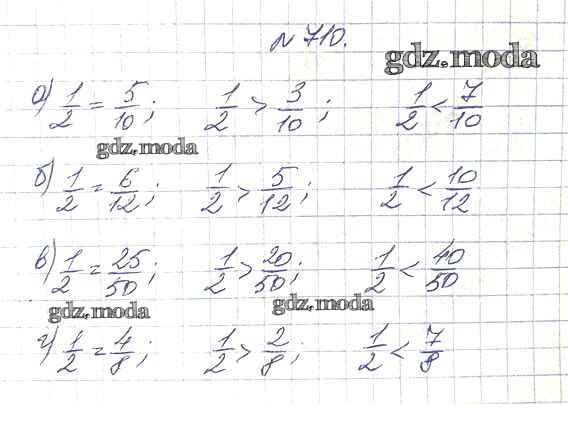 № 710.
gdz.moda
а) 1/2 = 5/10; 1/2 > 3/10; 1/2 < 7/10
gdz.moda
б) 1/2 = 6/12; 1/2 > 5/12; 1/2 < 10/12
в) 1/2 = 25/50; 1/2 > 20/50; 1/2 < 40/50
gdz.moda gdz.moda
г) 1/2 = 4/8; 1/2 > 2/8; 1/2 < 7/8